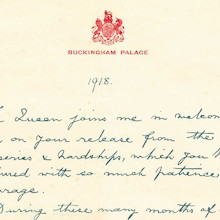 BUCKINGHAM PALACE
1918.
Queen joins me in
on your release from the
& hardships, which you
with so much patience
During these many months of